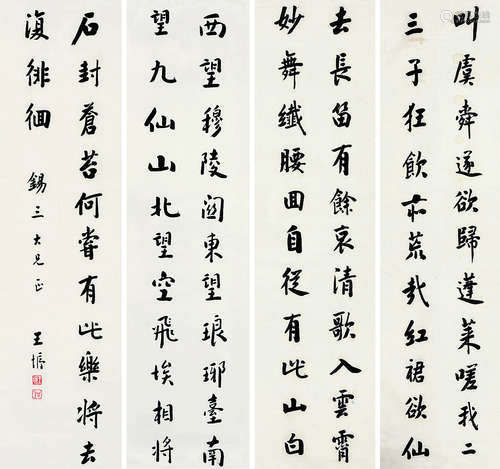 叫虞舜遂欲歸蓬萊嗟我二
三子狂飲亦荒哉紅裙欲仙
去長笛有餘哀清歌入雲霄
妙舞纖腰回自從有此山白
西望穆陵關東望琅琊臺南
望九仙山北望空飛埃相將
石封蒼苔何嘗有此樂將去
復徘徊
錫三大兄正
王